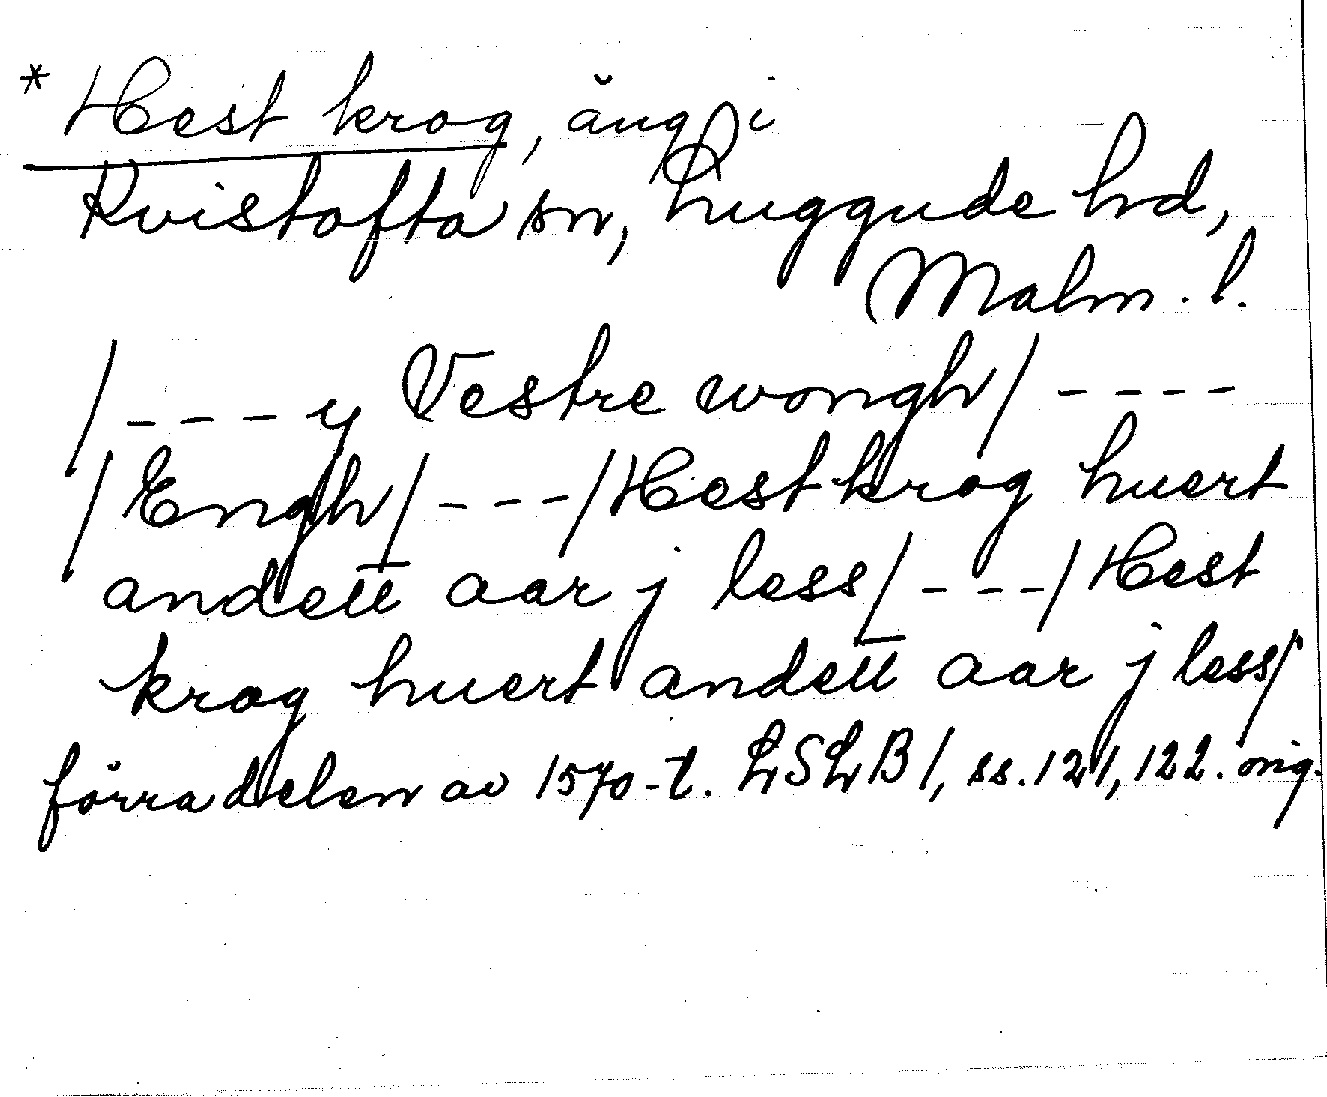 * Hest krog, äng i
Kvistofta sn, Luggude hd,
Malm. l.
/---y Vestre wongh/----
/Engh/---/Hestkrog huert
andett aar j less/---/Hest
krog huert andett aar j less/
förra delen av 1570-t. LSLB 1, ss. 121, 122. orig.